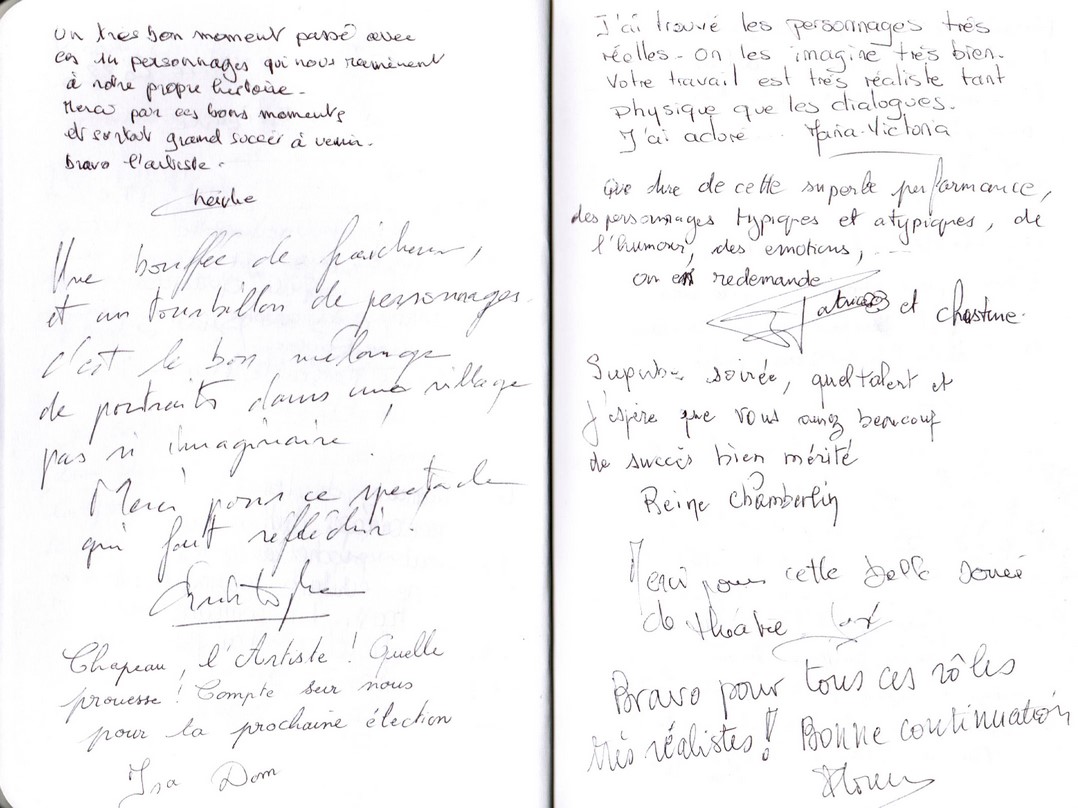 Un très bon moment passé avec
ces personnages qui nous ramènent
à notre propre histoire.
Merci par ces bons moments
et surtout grand succès à venir.
bravo l'artiste.
Une bouffée de fraicheur,
et un tourbillon de personnages.
c'est le bon mélange
de portraits dans une village
pas si imaginaire !
Merci pour ce spectacle
qui fait réfléchir.
Christophe
Chapeau, l'Artiste ! Quelle
prouesse ! Compte sur nous
pour la prochaine élection
Isa Dom
J'ai trouvé les personnages trés
réelles - On les imagine trés bien.
Votre travail est trés réaliste tant
physique que les dialogues.
J'ai adoré. Maria-Victoria
Que dire de cette superbe performance,
des personnages typiques et atypiques, de
l'humour, des emotions, ....
on en redemande
et
Superbe soirée, quel talent et
j'espère que vous aurez beaucoup
de succès bien mérité
Reine Chamberlin
Merci pour cette belle soirée
de théâtre
Bravo pour tous ces rôles
très réalistes ! Bonne continuation